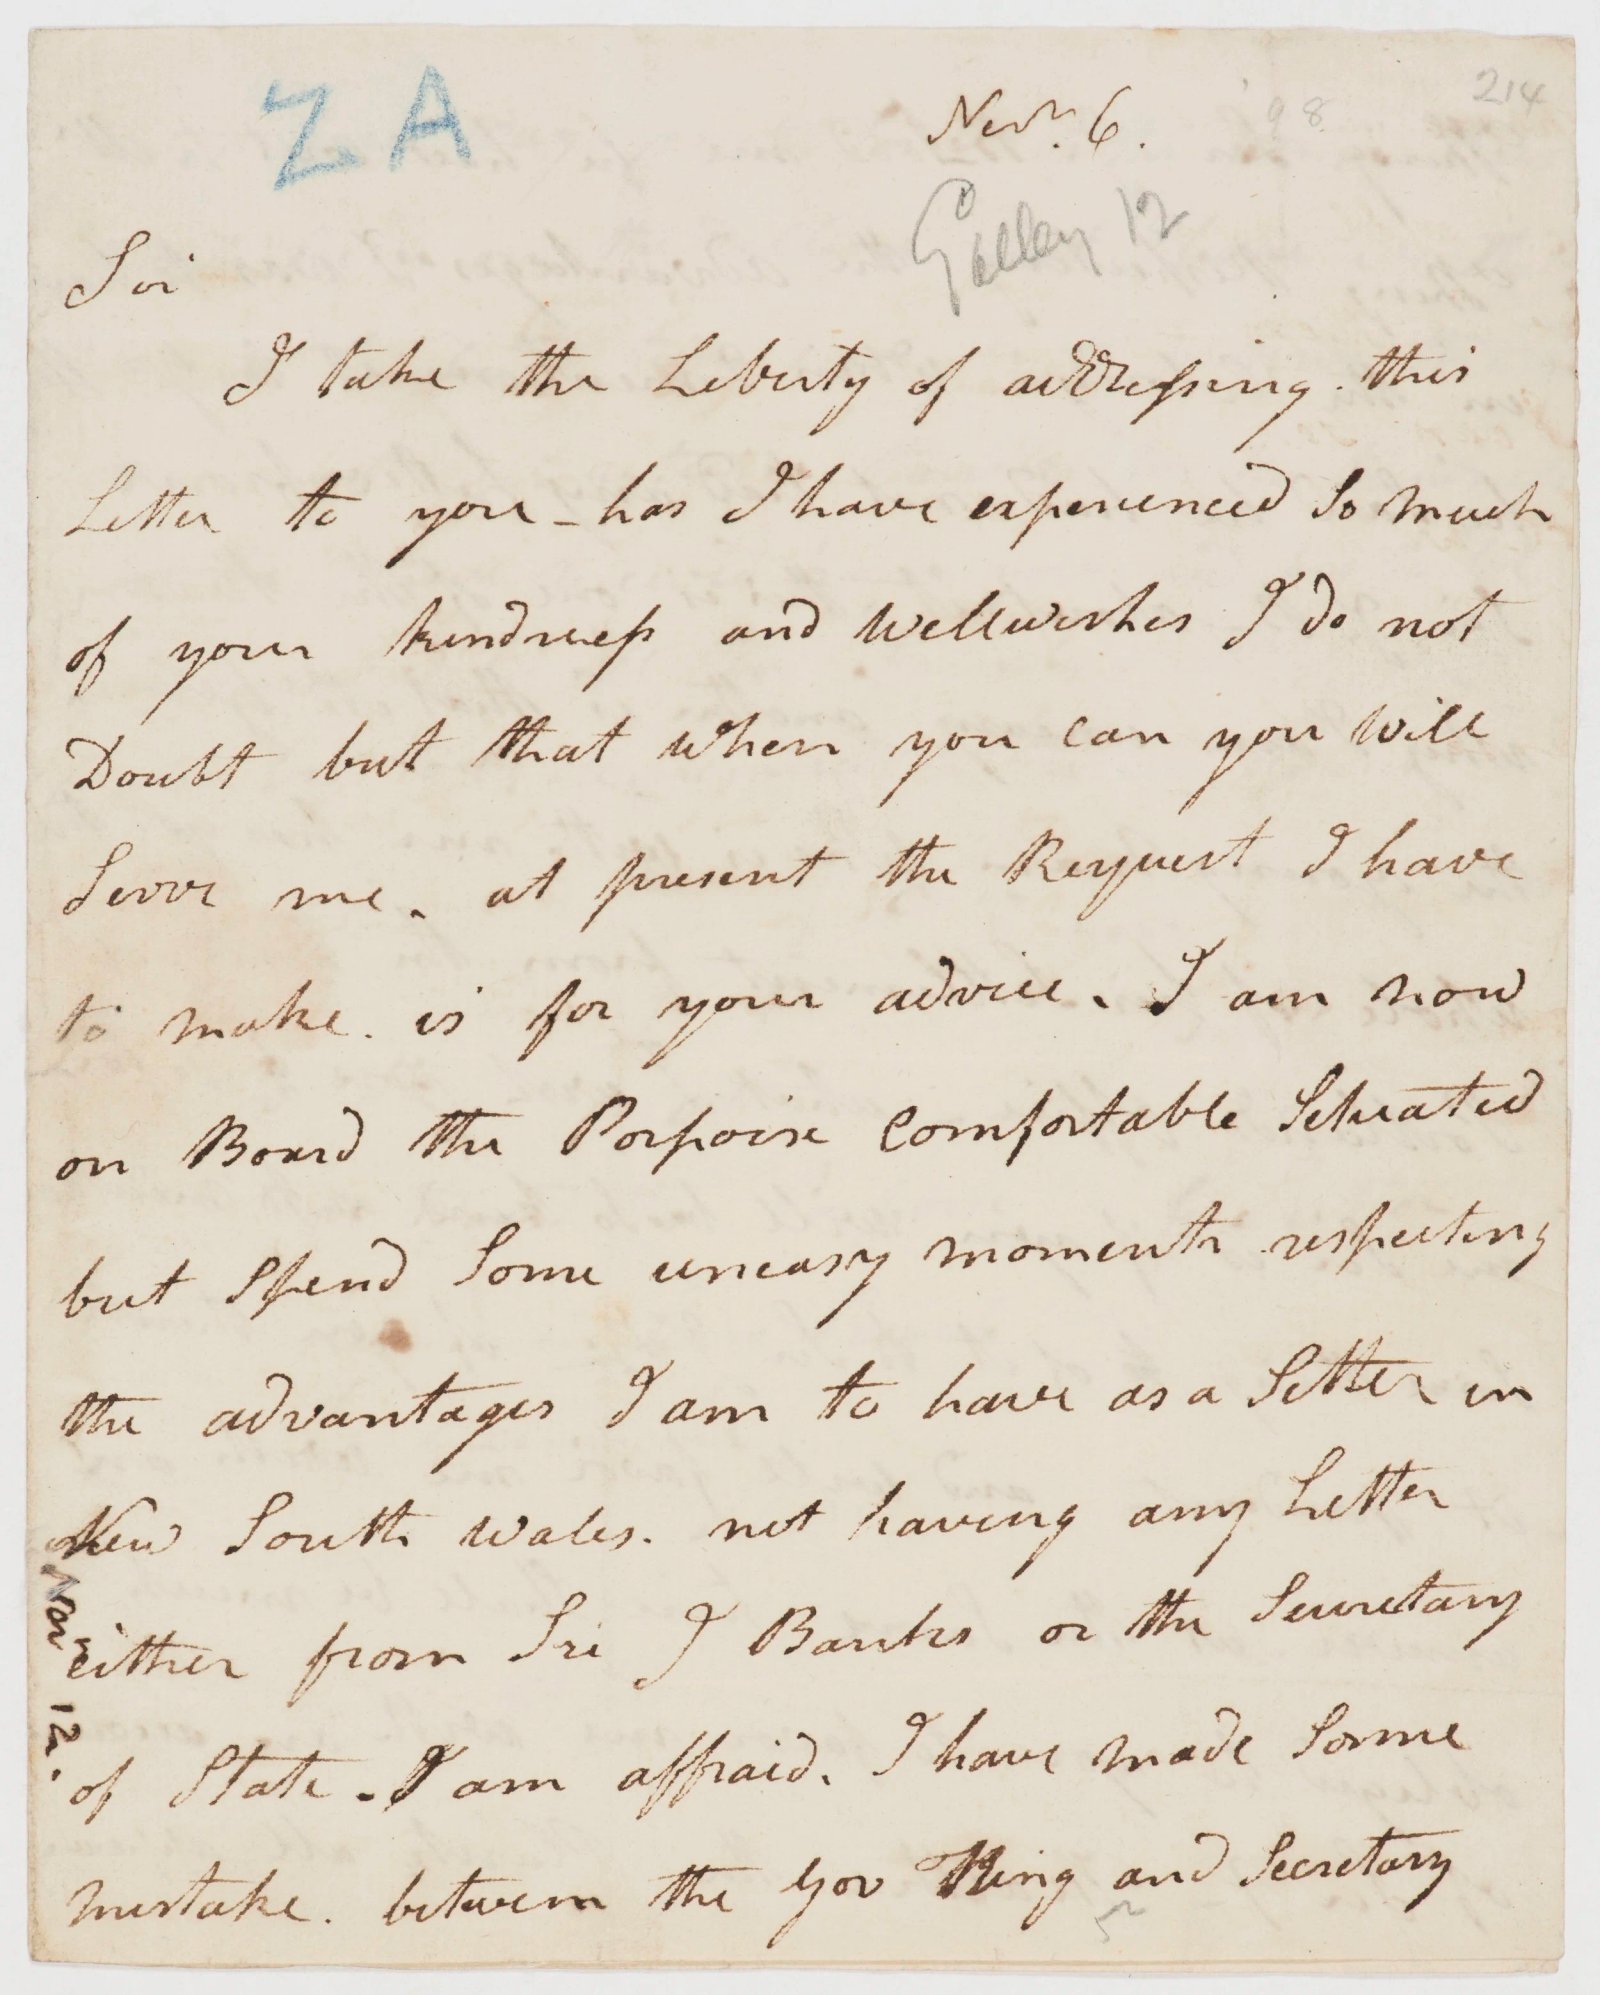 ZA
Novr. 6.
98
214
Galley 12
Sir
I take the Liberty of addressing this
Letter to you - has I have experienced So much
of your kindness and Wellwishes I do not
Doubt but that when you can you Will
Serve me. at present the Request I have
to make. is for your advice. I am now
on Board the Porpoise Comfortable Setuated
but Spend Some uneasy moments respecting
the advantages I am to have as a Setter in
New South Wales. not having any Letter
either from Sir J Banks or the Secretary
of State. I am affraid. I have made Some
mistake. between the Gov King and Secretary
Nov 12.